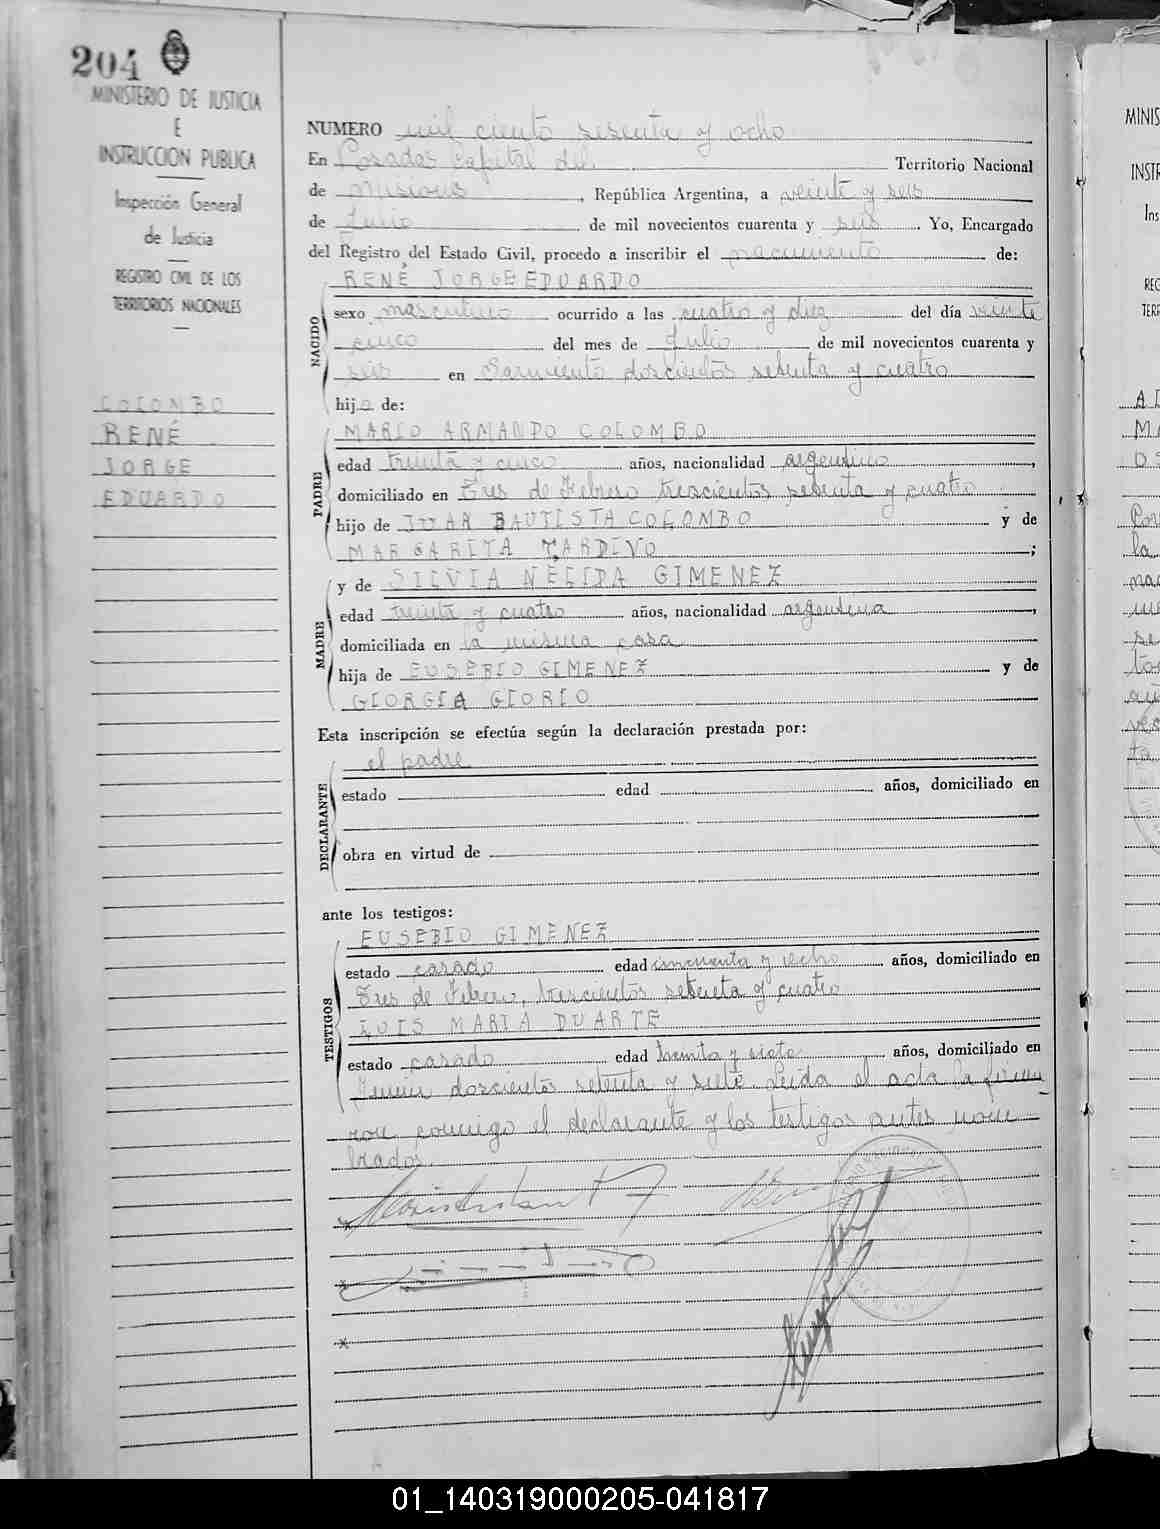 204
MINISTERIO DE JUSTICIA
E
INSTRUCCION PUBLICA
Inspección General
de Justicia
REGISTRO CIVIL DE LOS
TERRITORIOS NACIONALES
COLOMBO
RENÉ
JORGE
EDUARDO
NUMERO mil ciento sesenta y ocho
En Posadas Capital del Territorio Nacional
de Misiones, República Argentina, a veinte y seis
de Junio de mil novecientos cuarenta y seis. Yo, Encargado
del Registro del Estado Civil, procedo a inscribir el nacimiento de:
NACIDO
RENÉ JORGE EDUARDO
sexo masculino ocurrido a las cuatro y diez del día veinte
cinco del mes de Julio de mil novecientos cuarenta y
seis en Sarmiento doscientos setenta y cuatro
hijo de:
PADRE
MARIO ARMANDO COLOMBO
edad treinta y cinco años, nacionalidad argentino,
domiciliado en Tres de Febrero trescientos setenta y cuatro
hijo de JUAN BAUTISTA COLOMBO y de
MARGARITA TARDIVO;
MADRE
y de SILVIA NELIDA GIMENEZ
edad treinta y cuatro años, nacionalidad argentina,
domiciliada en la misma casa
hija de EUSEBIO GIMENEZ y de
GIORGIA GIORIO
Esta inscripción se efectúa según la declaración prestada por:
DECLARANTE
el padre
estado edad años, domiciliado en
obra en virtud de
ante los testigos:
TESTIGOS
EUSEBIO GIMENEZ
estado casado edad cincuenta y ocho años, domiciliado en
Tres de Febrero, trescientos setenta y cuatro
LUIS MARIA DUARTE
estado casado edad treinta y siete años, domiciliado en
Junin doscientos setenta y siete. Leida el acta la firma
ron conmigo el declarante y los testigos antes nom
brados.
MINIS
INSTR
Ins
REG
TERR
01_140319000205-041817